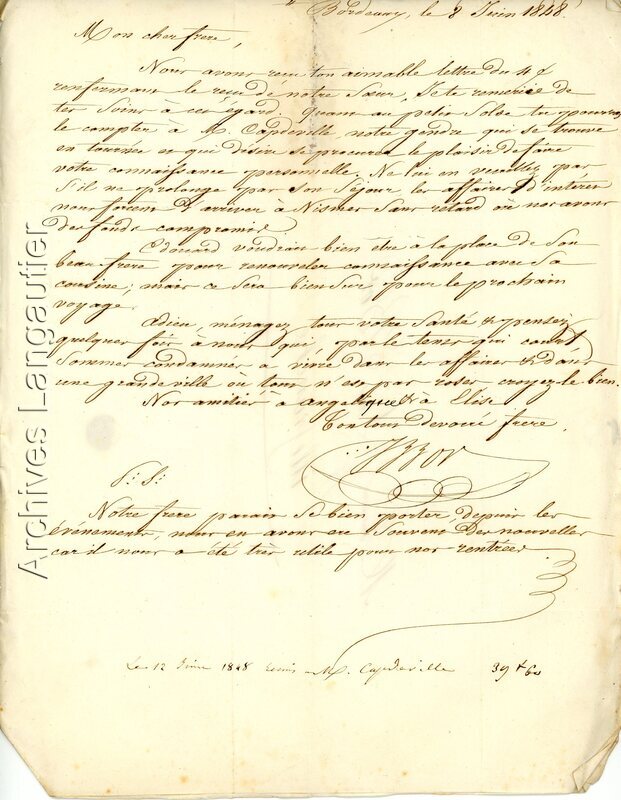 Bordeaux, le 8 Juin 1848.
Mon cher frere,
Nous avons recu ton aimable lettre du 4 ct
renfermant le recu de notre Sœur, Je te remercie de
tes Soins à cet égard. Quant au petit Solde tu pourras
le compter à M. Capdeville notre gendre qui se trouve
en tournée et qui désire se procurer le plaisir de faire
votre connaissance personnelle. Ne lui en veuillez pas
S'il ne prolonge pas son Séjour, les affaires d'intérêt
nous forcent d'arriver à Nismes Sans retard où nos avons
des fonds compromis
Edouard voudrait bien être à la place de Son
beau frere pour renouveler connaissance avec Sa
cousine; mais ce Sera bien Sur, pour le prochain
voyage.
Adieu, ménagez tous votre Santé & pensez
quelques fois à nous qui, par le tems qui court
Sommes condamnés à vivre dans les affaires & dans
une grande ville ou tout n'est pas roses croyez le bien.
Nos amitiés à Angelique & à Elise
Ton tout devoué frere,
P: S:
Notre frere parait Se bien porter, depuis les
événements, nous en avons eu Souvent des nouvelles
car il nous a été très utile pour nos rentrées
Le 12 Juin 1848 remis a M. Capdeville 39 f 60
Archives Langautier